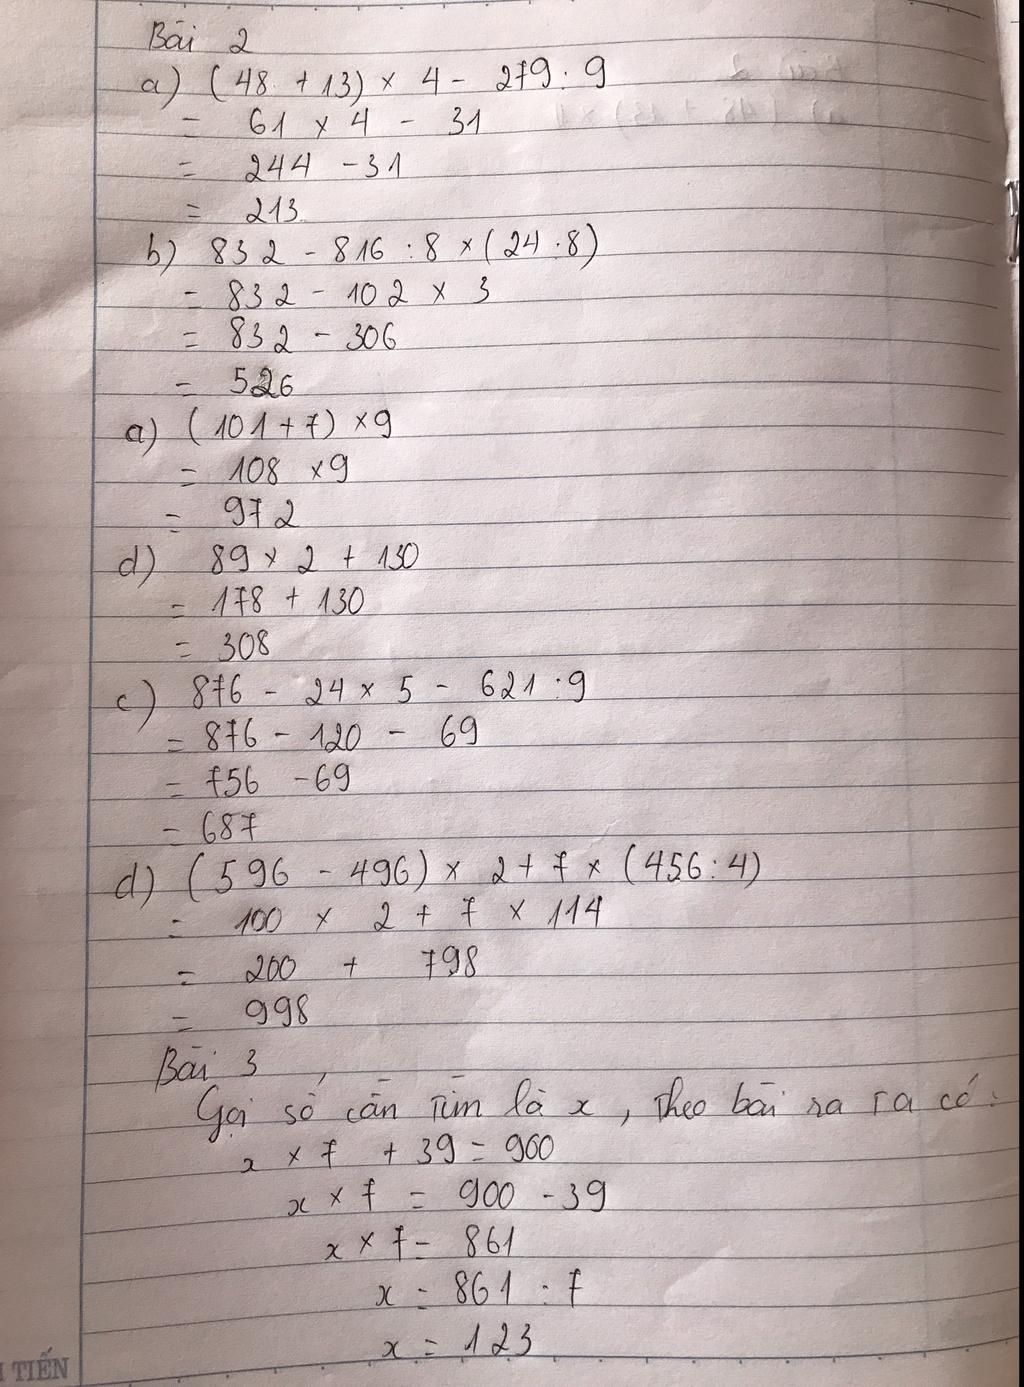 Bài 2
a) (48 + 13) × 4 - 279 : 9
= 61 × 4 - 31
= 244 - 31
= 213
b) 832 - 816 : 8 × (24 : 8)
= 832 - 102 × 3
= 832 - 306
= 526
a) (101 + 7) × 9
= 108 × 9
= 972
d) 89 × 2 + 130
= 178 + 130
= 308
c) 876 - 24 × 5 - 621 : 9
= 876 - 120 - 69
= 756 - 69
= 687
d) (596 - 496) × 2 + 7 × (456 : 4)
= 100 × 2 + 7 × 114
= 200 + 798
= 998
Bài 3
Gọi số cần tìm là x, theo bài ra ta có:
x × 7 + 39 = 900
x × 7 = 900 - 39
x × 7 = 861
x = 861 : 7
x = 123
TIẾN